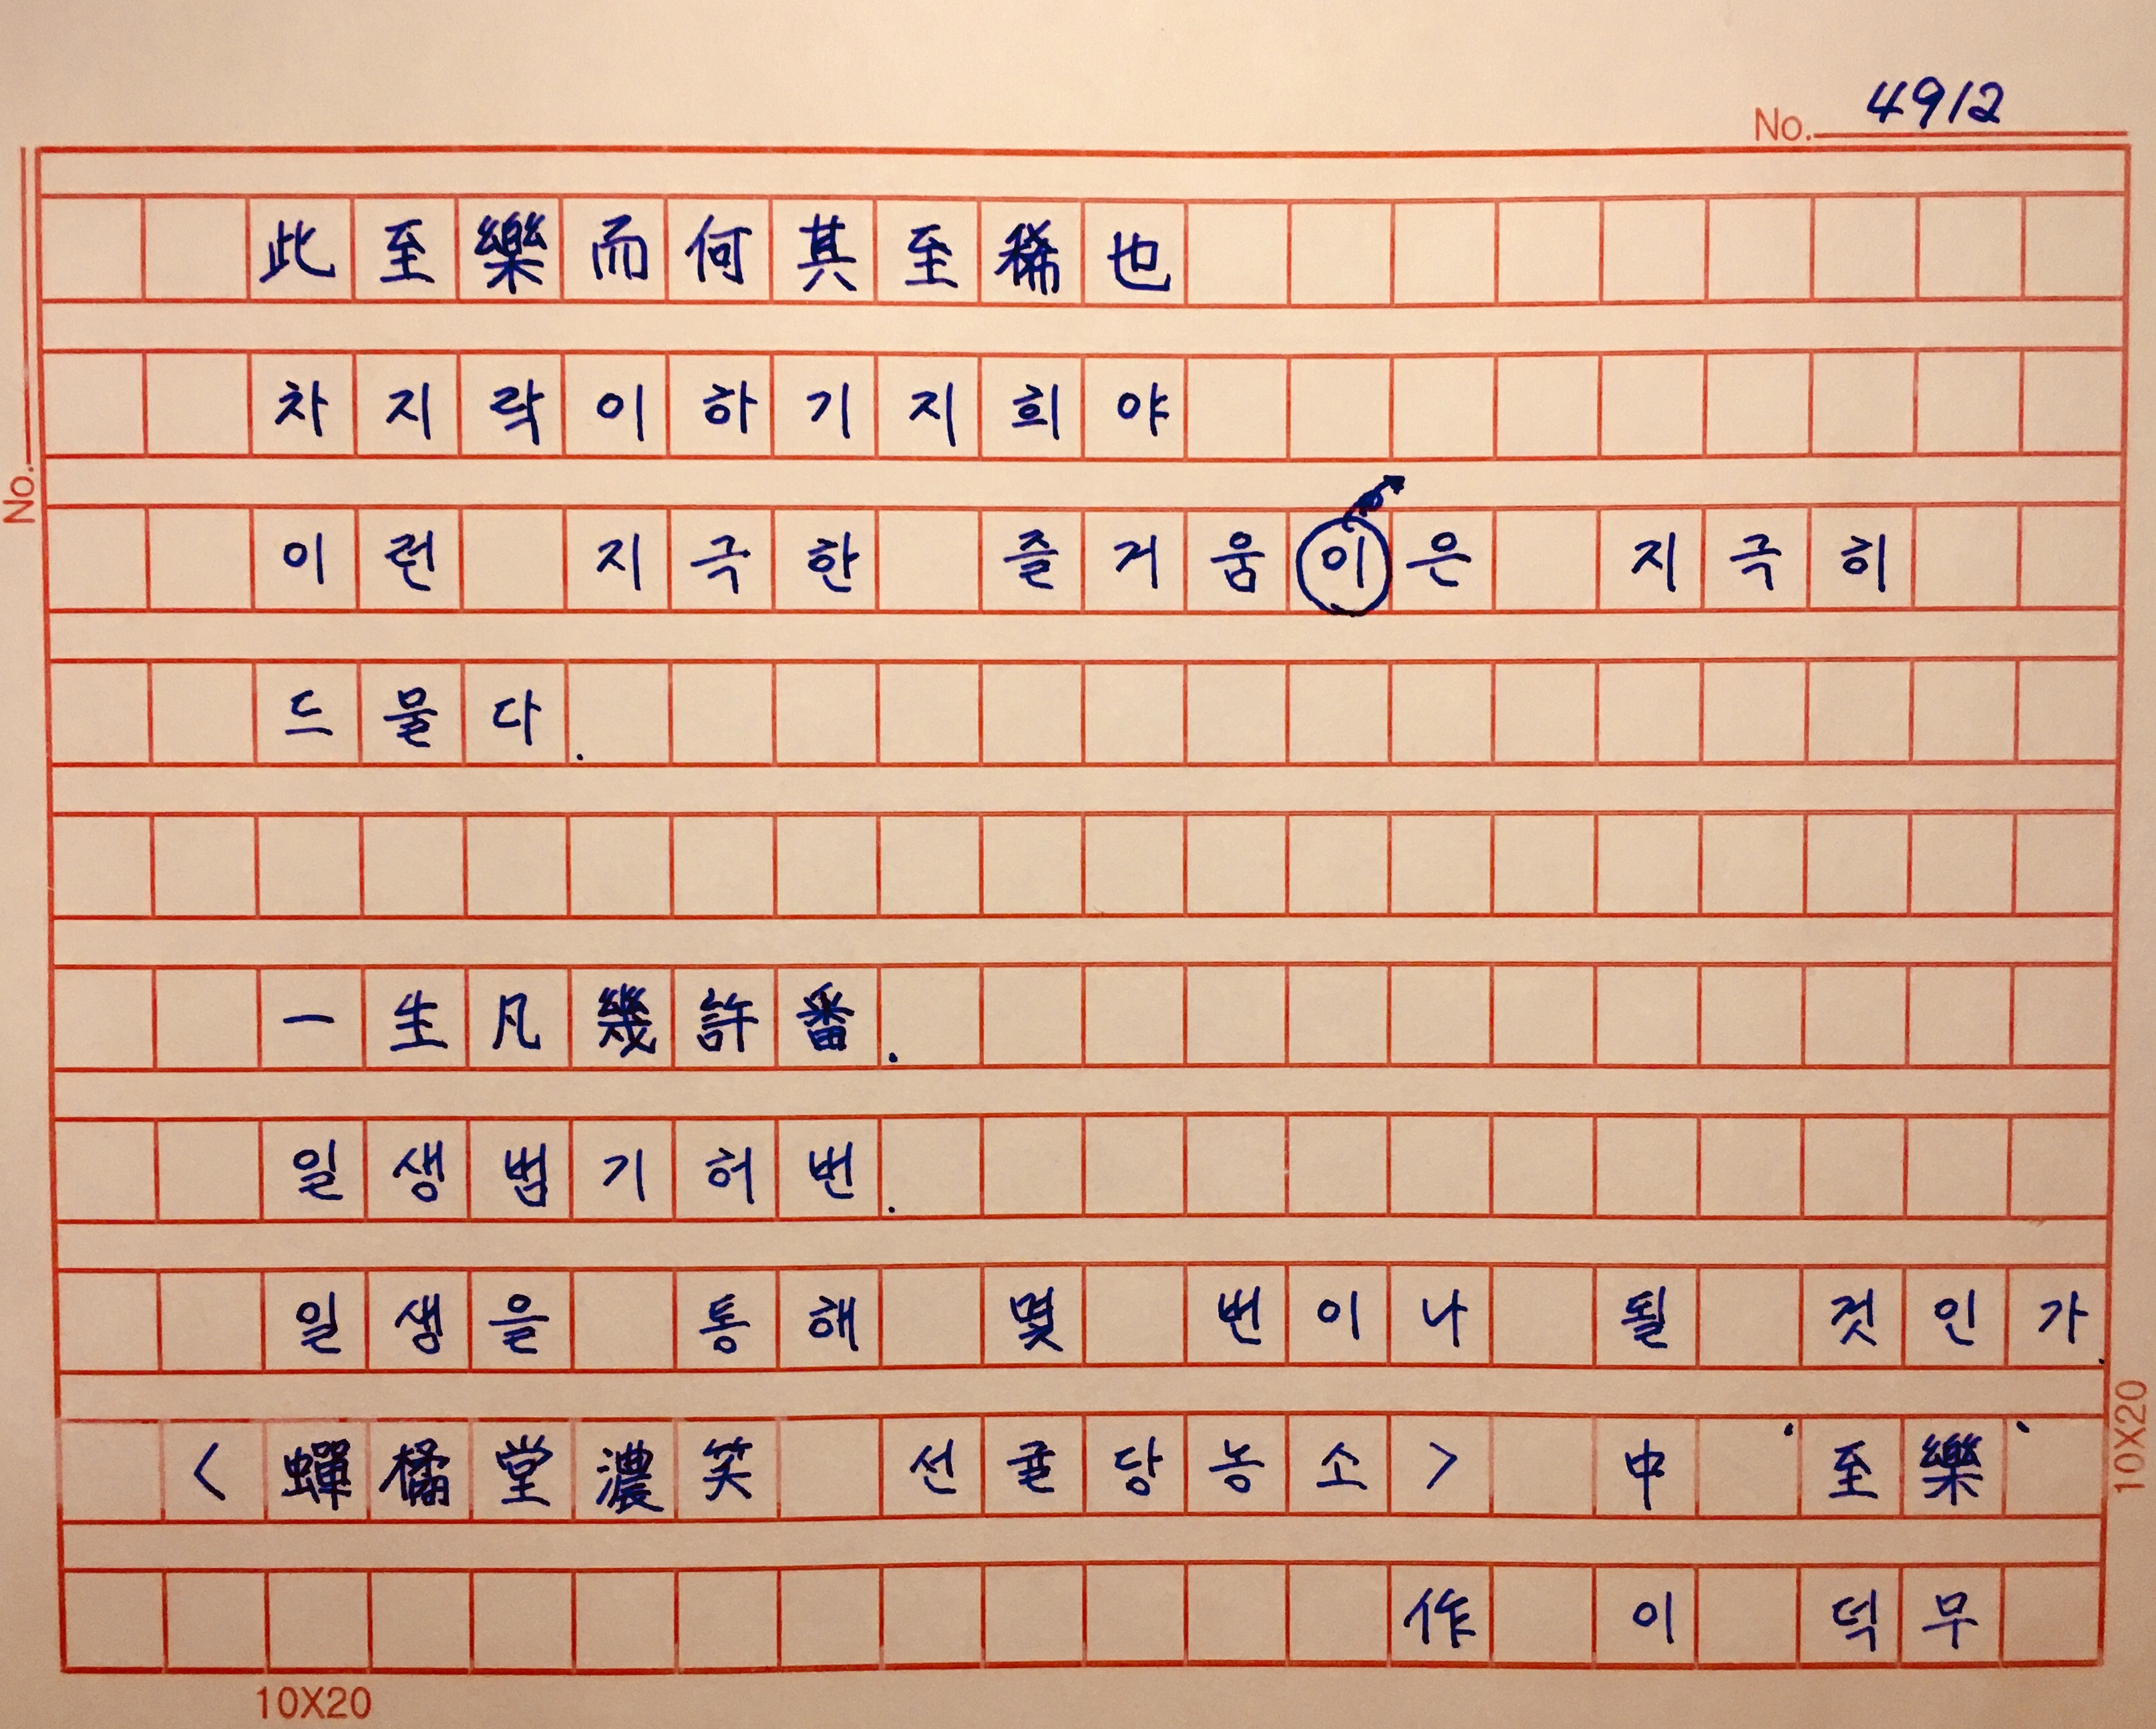 No. 4912
此至樂而何其至稀也
차지락이하기지희야
No.
이런 지극한 즐거움이은 지극히
드물다.
一生凡幾許番.
일생범기허번.
일생을 통해 몇 번이나 될 것인가.
<蟬橘堂濃笑 선귤당농소> 中 '至樂'
作 이 덕무
10X20
10X20